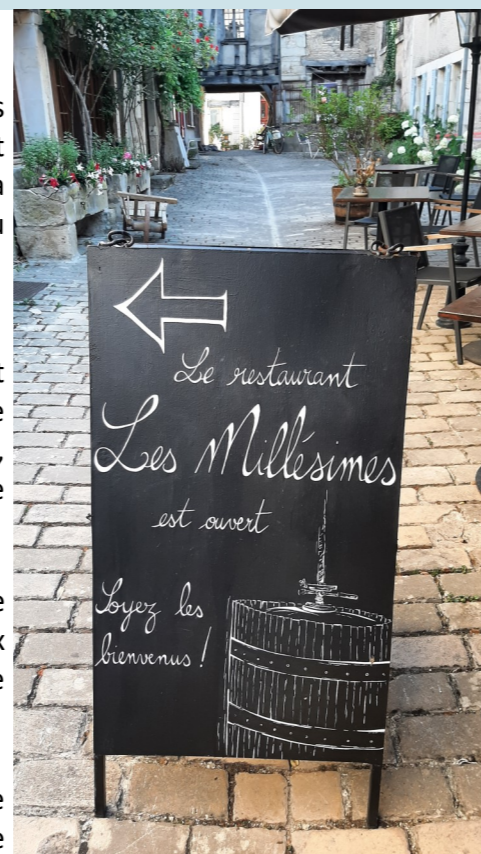 Le restaurant
Les Millésimes
est ouvert
Soyez les
bienvenus !